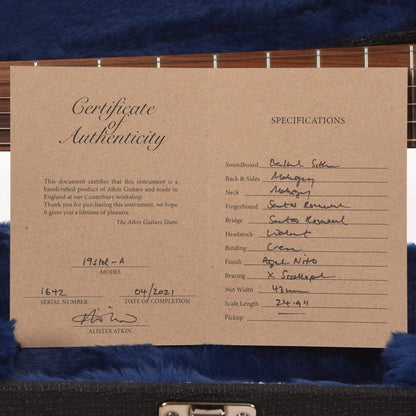 Certificate
of
Authenticity
This document certifies that this instrument is a
handcrafted product of Atkin Guitars and made in
England at our Canterbury workshop.
Thank you for purchasing this instrument, we hope
it gives you a lifetime of pleasure.
- The Atkin Guitars Team
MODEL
1642
04/2021
SERIAL NUMBER
DATE OF COMPLETION
ALISTER ATKIN
SPECIFICATIONS
Soundboard Baked Sitka
Back & Sides Mahogany
Neck Mahogany
Fingerboard Santos Rosewood
Bridge Santos Rosewood
Headstock Walnut
Binding Cream
Finish Aged Nitro
Bracing X Scalloped
Nut Width 43mm
Scale Length 24.9"
Pickup